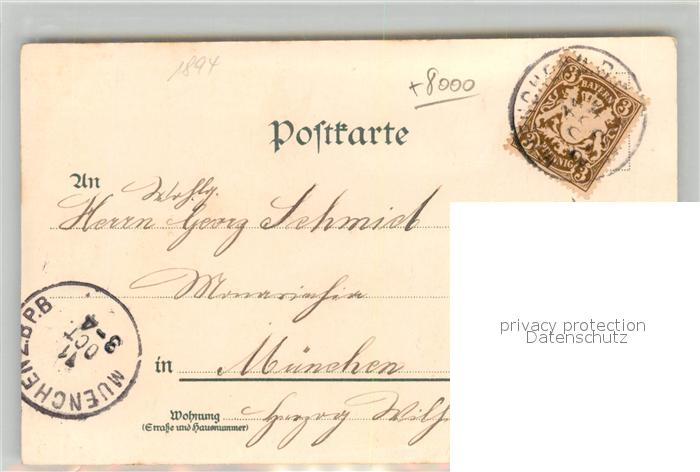 1894
+8000
Postkarte
BAYERN
3 3
3 3
An Wohlg.
Herrn Georg Schmid
Monarichia
MUENCHEN 2.B.P.B
11
OCT.
3-4
in München
Wohnung
(Straße und Hausnummer)
Herzog Wilh
privacy protection
Datenschutz